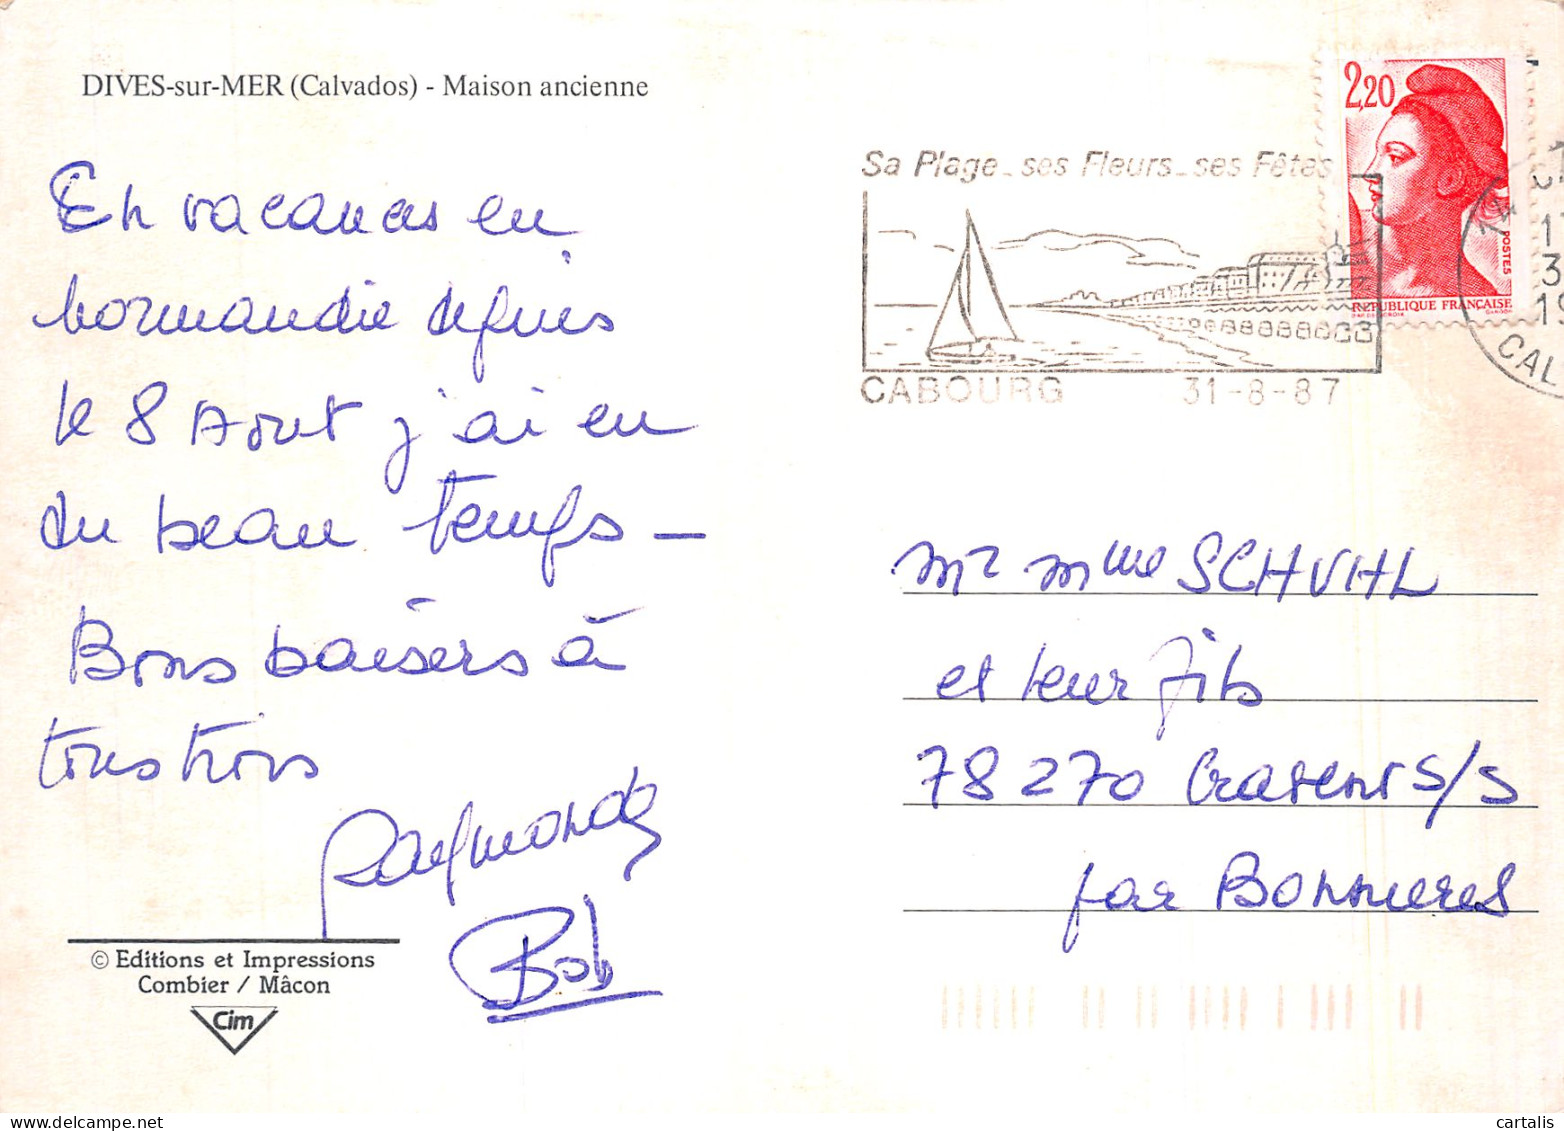 DIVES-sur-MER (Calvados) - Maison ancienne
En vacances en
Normandie depuis
le 8 Aout j'ai eu
du beau temps -
Bons baisers à
tous trois
Raymonde
Bob
© Editions et Impressions
Combier / Mâcon
Cim
Sa Plage_ses Fleurs_ses Fêtes
CABOURG 31-8-87
2,20
POSTES
REPUBLIQUE FRANÇAISE
CAL
Mr Mme SCHUHL
et leur fils
78270 Cravent S/S
par Bonnieres
cartalis